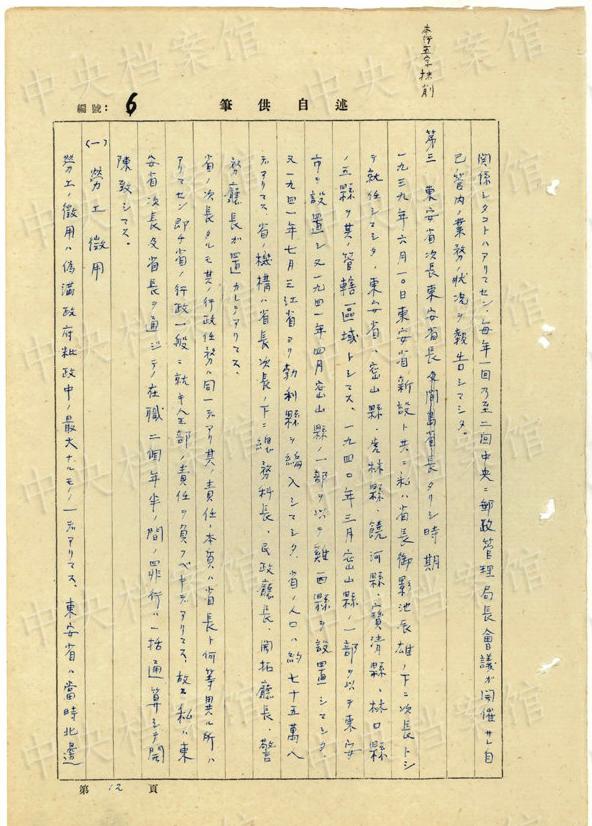 本行五字抹削
編號：6
筆供自述
関係シタコトハアリマセン、毎年一回乃至二回中央ニ郵政管理局長會議ガ開催サレ自
己管内ノ業務ノ状況ヲ報告シマシタ。
第三 東安省次長東安省長東間島省長タリシ時期
一九三九年六月一〇日東安省新設ト共ニ私ハ省長御影池辰雄ノ下ニ次長トシ
テ就任シマシタ、東安省ハ密山縣 虎林縣 饒河縣、寶清縣、林口縣
ノ五縣ヲ其ノ管轄區域トシマス、一九四〇年三月密山縣ノ一部ヲ以テ東安
市ヲ設置シ又一九四一年四月密山縣ノ一部ヲ以テ雞西縣ヲ設置シマシタ、
又一九四一年七月三江省ヨリ勃利縣ヲ編入シマシタ、省ノ人口ハ約七十五萬人
デアリマス、省ノ機構ハ省長次長ノ下ニ總務科長、民政廳長、開拓廳長、警
務廳長ガ置カレテアリマス。
省ノ次長タルモ其ノ行政任務ハ同一デアリ其ノ責任ノ本質ハ省長ト何等異ル所ハ
アリマセン 即チ省ノ行政一般ニ就キ全部ノ責任ヲ負フベキデアリマス、故ニ私ハ東
安省次長及省長ヲ通ジテノ在職二個年半ノ間ノ罪行ハ一括通算シテ開
陳致シマス。
(一) 勞工徴用
勞工ノ徴用ハ偽満政府秕政中ノ最大ナルモノノ一デアリマス、東安省ハ當時北邊
第 12 頁
中央档案馆